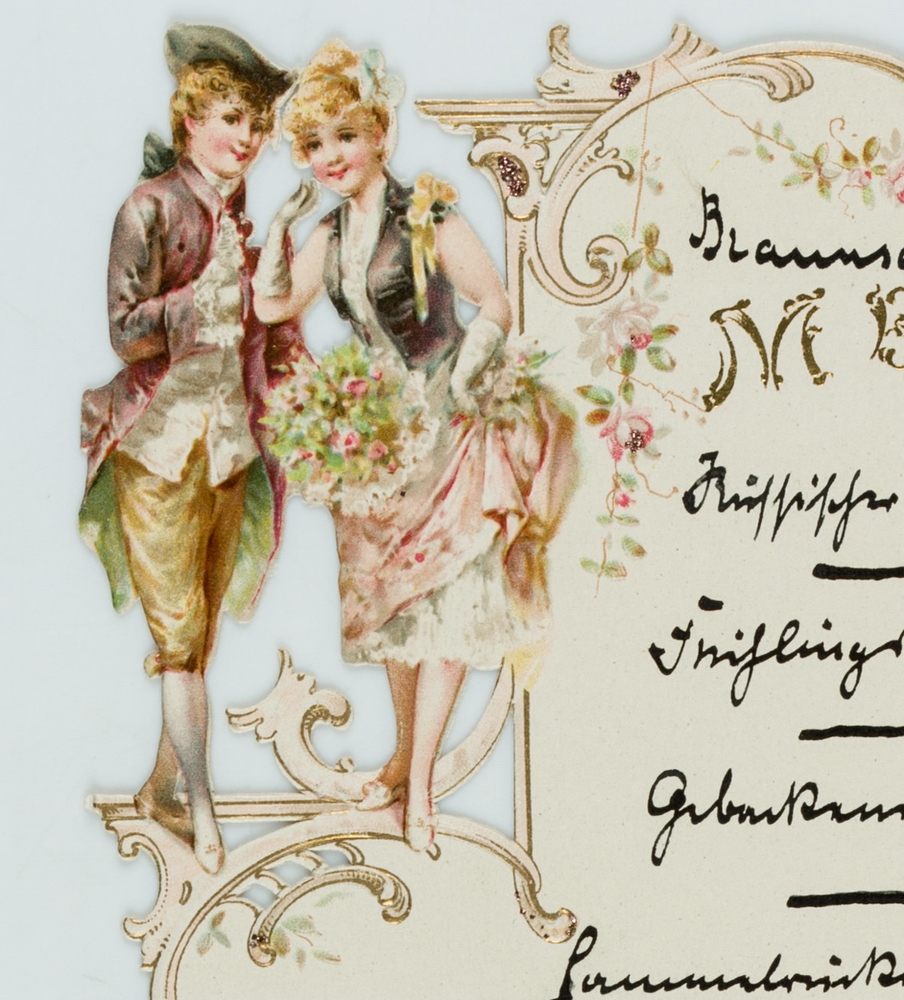 Braunsc
M
Russischer
Frühlings
Gebackene
Hammelrück